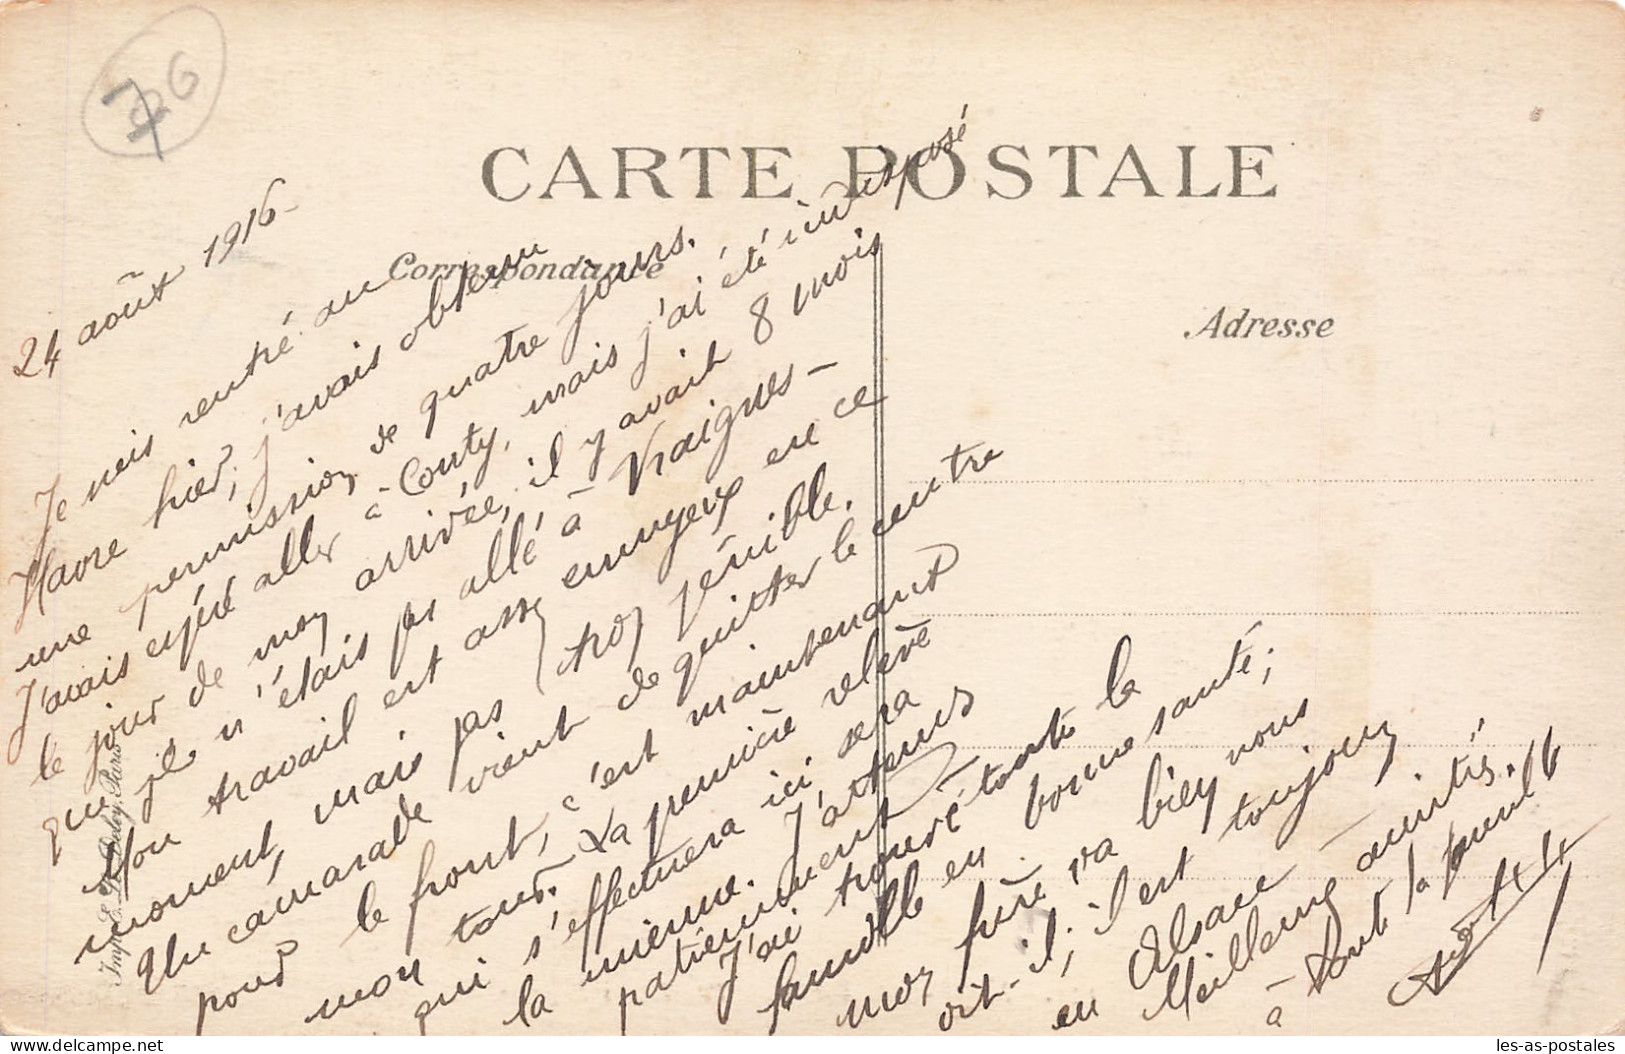 76
CARTE POSTALE
Correspondance
Adresse
24 août 1916-
Je suis rentré au
Havre hier, j'avais obtenu
une permission de quatre jours.
J'avais espéré aller à Conty, mais j'ai été indisposé
le jour de mon arrivée, il y avait 8 mois
que je n'étais pas allé à Vraignes-
Mon travail est assez ennuyeux en ce
moment, mais pas trop pénible.
Un camarade vient de quitter le centre
pour le front, c'est maintenant
mon tour. La première relève
qui s'effectuera ici, sera
la mienne. J'attends
patiemment
J'ai trouvé toute la
famille en bonne santé;
mon frère va bien nous
dit-il; il est toujours
en Alsace-
Meilleures amitiés
à toute la famille
Imp. E. Le Deley, Paris
les-as-postales